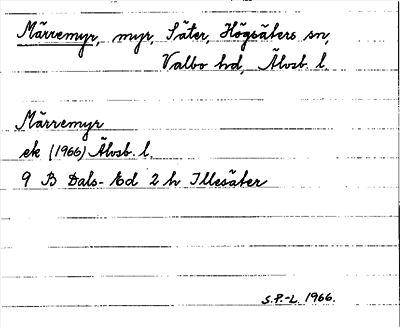 Märremyr, myr, Säter, Högsäters sn,
Valbo hd, Älvsb. l.
Märremyr
ek (1966) Älvsb. l.
9 B Dals-Ed 2 h Illesäter
S.P.-L. 1966.